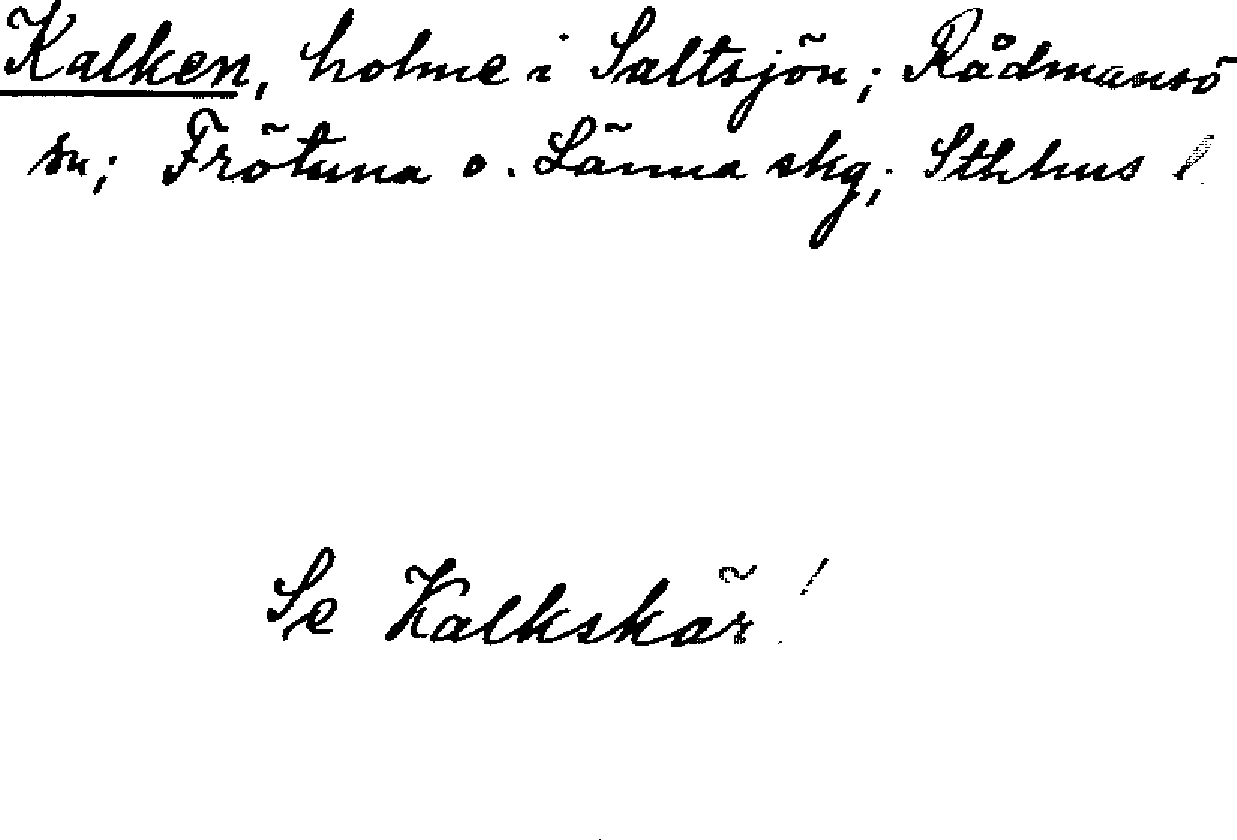 Kalken, holme i Saltsjön; Rådmansö
sn; Frötuna o. Länna skg; Sthlms l.
Se Kalkskär!